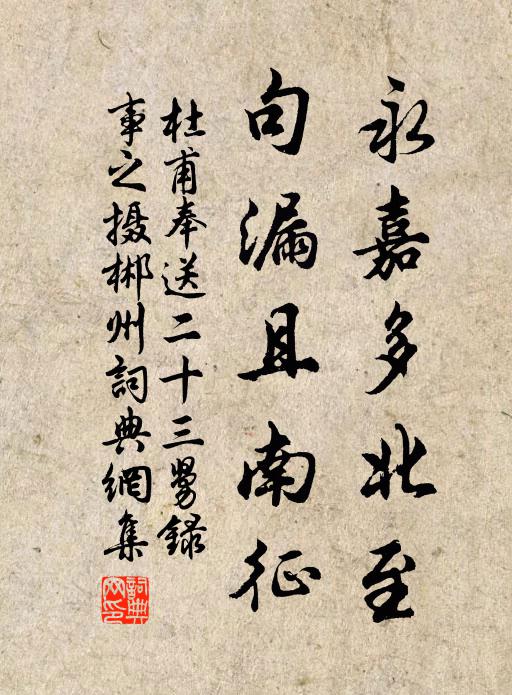 永嘉多北至
句漏且南征
杜甫奉送二十三舅錄
事之摄郴州詞典網集
詞典網印